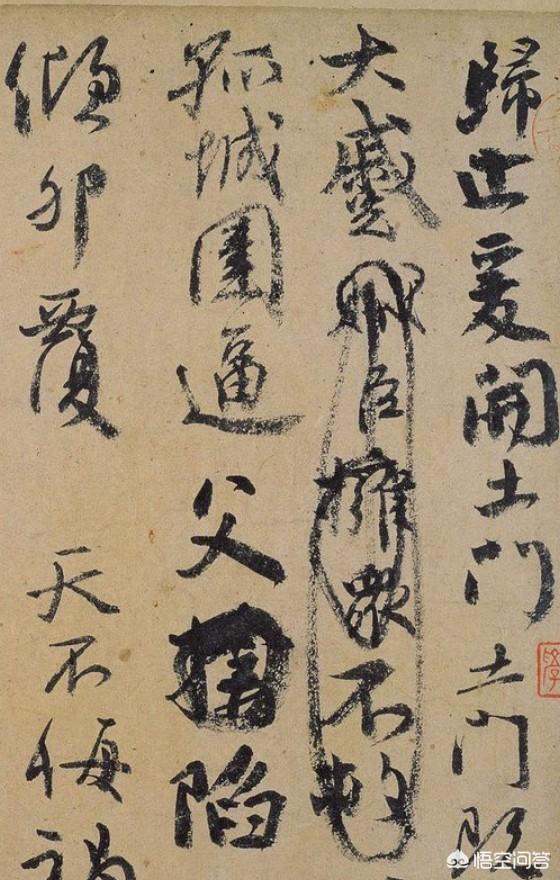 歸止爰開土門土門既
大蹙賊臣擁衆不救
孤城圍逼父陷
傾卵覆 天不悔禍
悟空问答